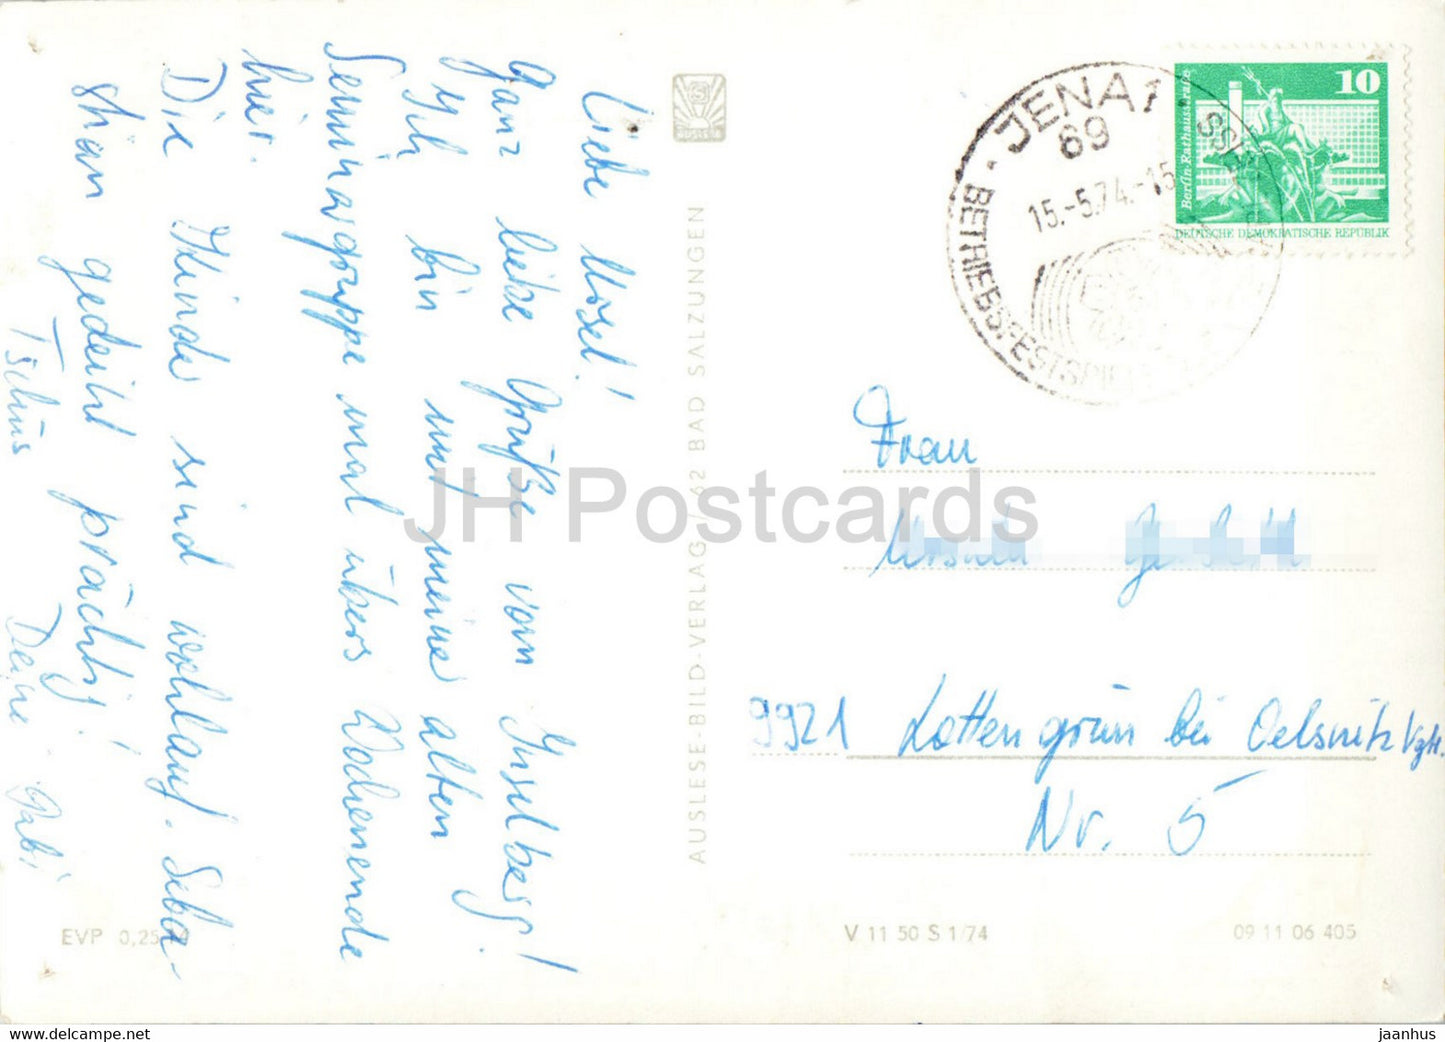 Liebe Ursel!
Ganz liebe Grüße vom Inselberg!
Ich bin mit meiner alten
Seminargruppe mal übers Wochenende
hier.
Die Kinder sind wohlauf. Seba-
stian gedeiht prächtig!
Tschüs Deine Gabi
AUSLESE-BILD-VERLAG / 62 BAD SALZUNGEN
JENA 1
69
15.-5.74.-15
BETRIEBSFESTSPIELE
10
Berlin-Rathausstraße
DEUTSCHE DEMOKRATISCHE REPUBLIK
Frau
Ursula
9921 Lottengrün bei Oelsnitz Vgtl.
Nr. 5
EVP 0,25
V 11 50 S 1/74
09 11 06 405
JH Postcards
www.delcampe.net
jaanhus